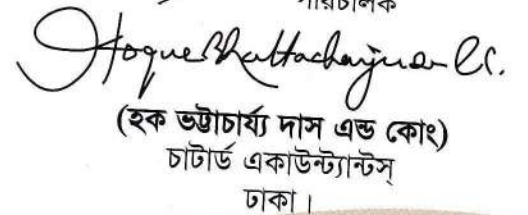 পরিচালক
Hoque Bhattacharjee Das & Co.
(হক ভট্টাচার্য্য দাস এন্ড কোং)
চাটার্ড একাউন্ট্যান্টস্
ঢাকা।